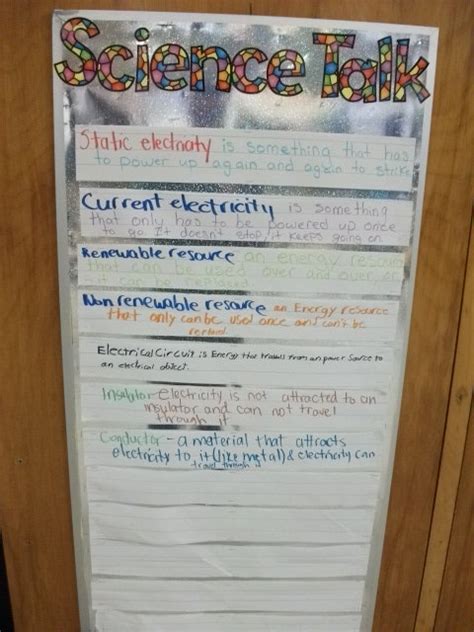 Science Talk
Static electricity is something that has
to power up again and again to strike
Current electricity is something
that only has to be powered up once
to go. It doesn't stop, it keeps going on
Renewable resource an energy resource
that can be used over and over, or
it can be replaced
Non renewable resource an Energy resource
that only can be used once and can't be
Electrical Circuit is Energy that travels from an power source to
an electrical object.
Insulator - electricity is not attracted to an
insulator and can not travel
through it
Conductor - a material that attracts
electricity to it (like metal) & electricity can
travel through it